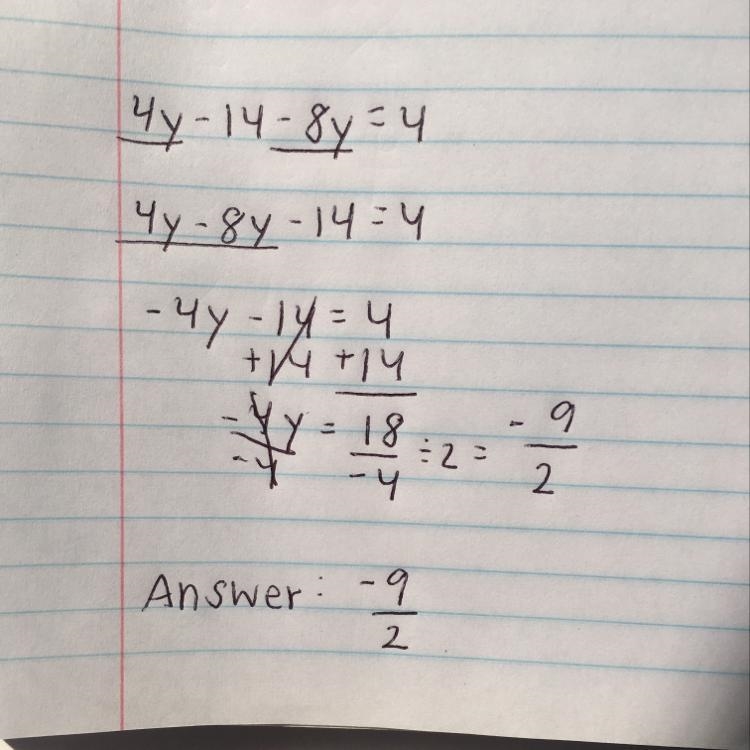 4y - 14 - 8y = 4
4y - 8y - 14 = 4
-4y - 14 = 4
+14 +14
-4y = 18 ÷ 2 = - 9
-4 -4 2
Answer: -9
2